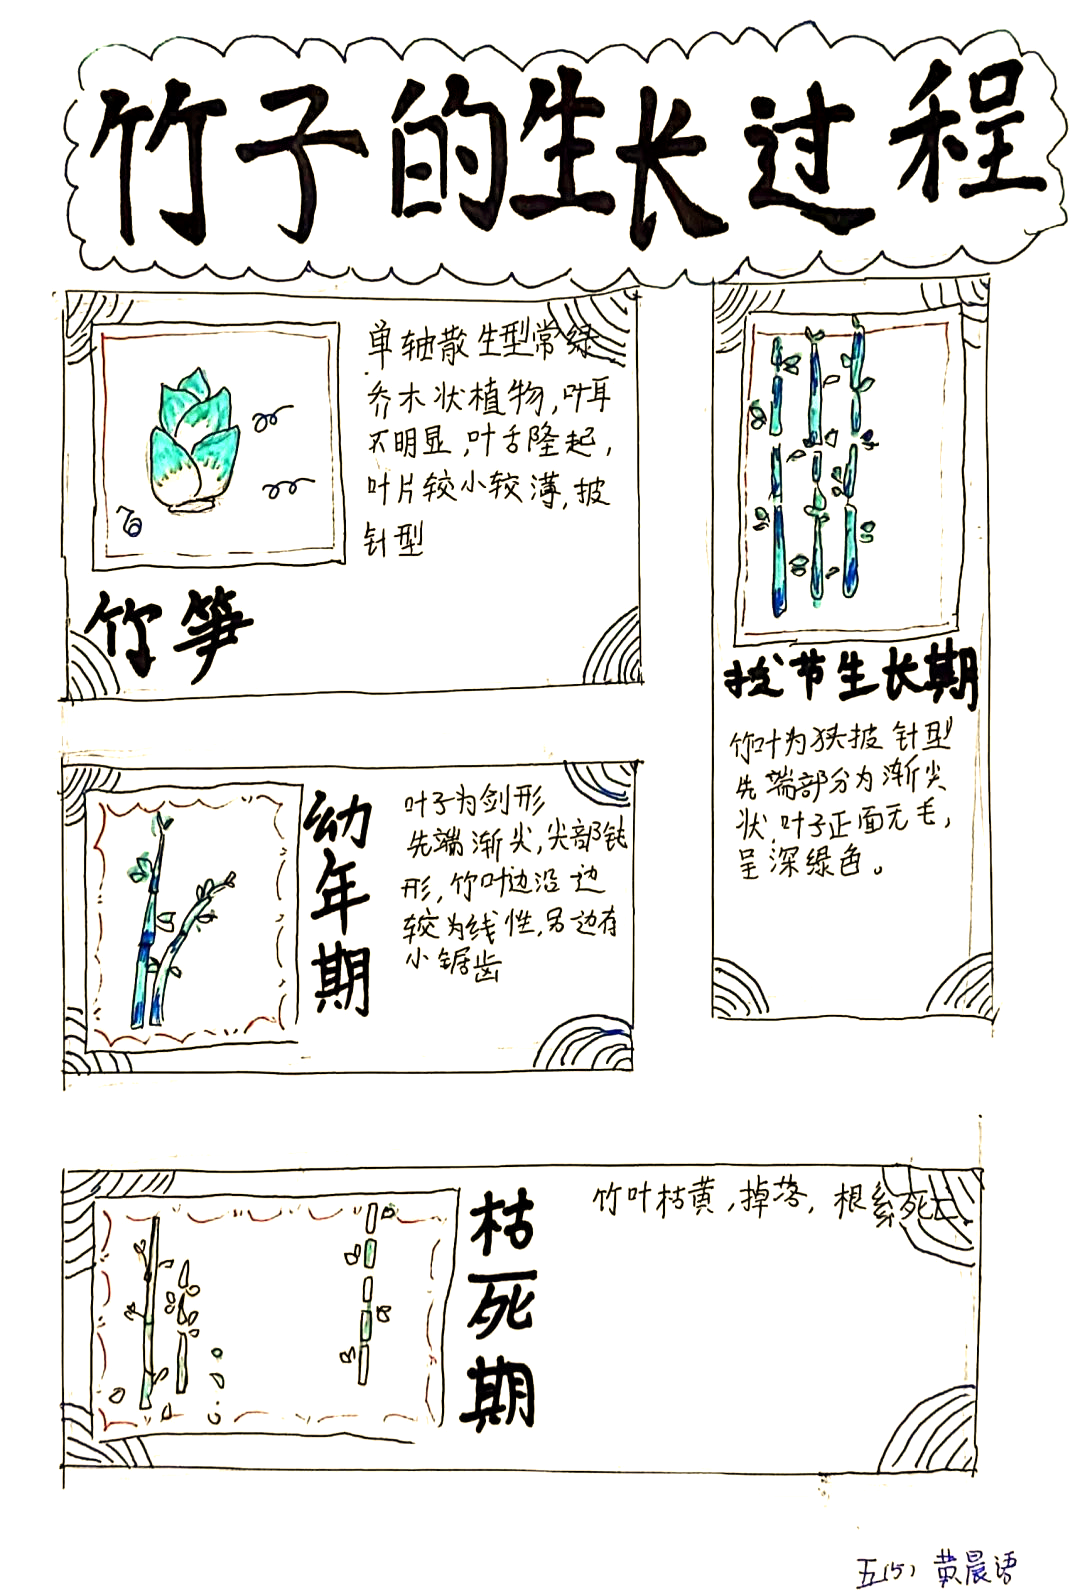 竹子的生长过程
单轴散生型常绿
乔木状植物,叶耳
不明显,叶舌隆起,
叶片较小较薄,披
针型
竹笋
拔节生长期
竹叶为狭披针型
先端部分为渐尖
状,叶子正面无毛,
呈深绿色。
幼年期
叶子为剑形
先端渐尖,尖部钝
形,竹叶边沿一边
较为线性,另一边有
小锯齿
枯死期
竹叶枯黄,掉落,根系死亡
五(5) 黄晨语